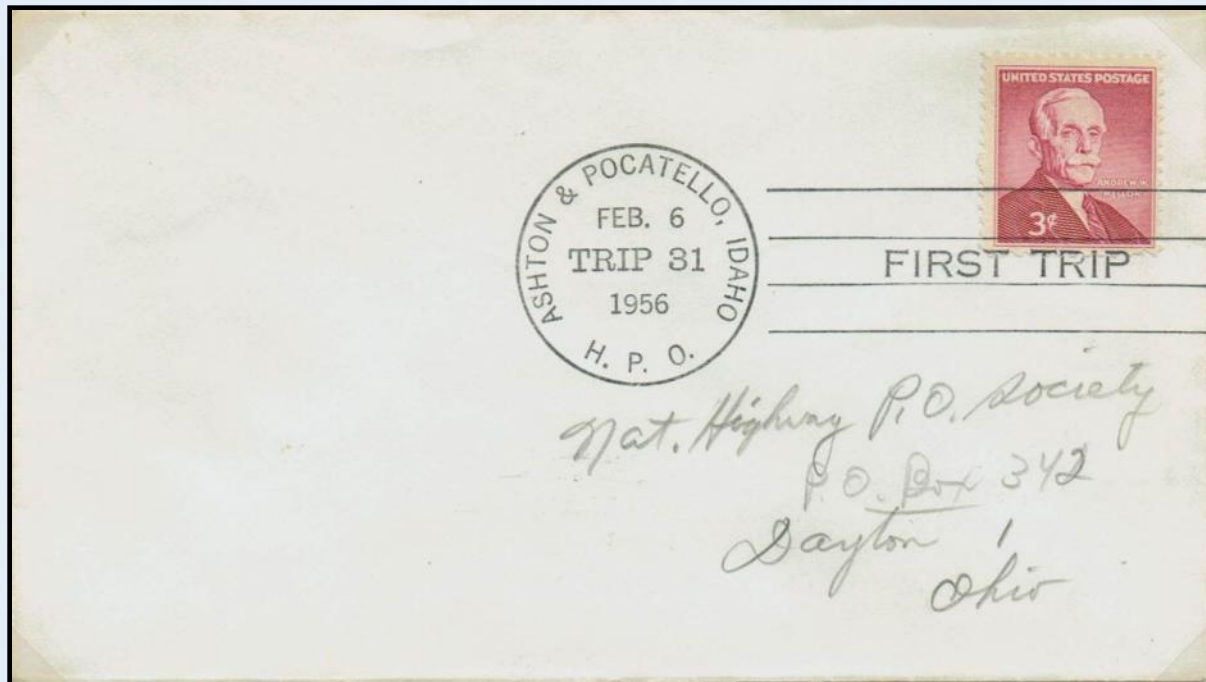 UNITED STATES POSTAGE
ANDREW W.
MELLON
3¢
ASHTON & POCATELLO, IDAHO
FEB. 6
TRIP 31
1956
H. P. O.
FIRST TRIP
Nat. Highway P.O. Society
P.O. Box 342
Dayton 1
Ohio